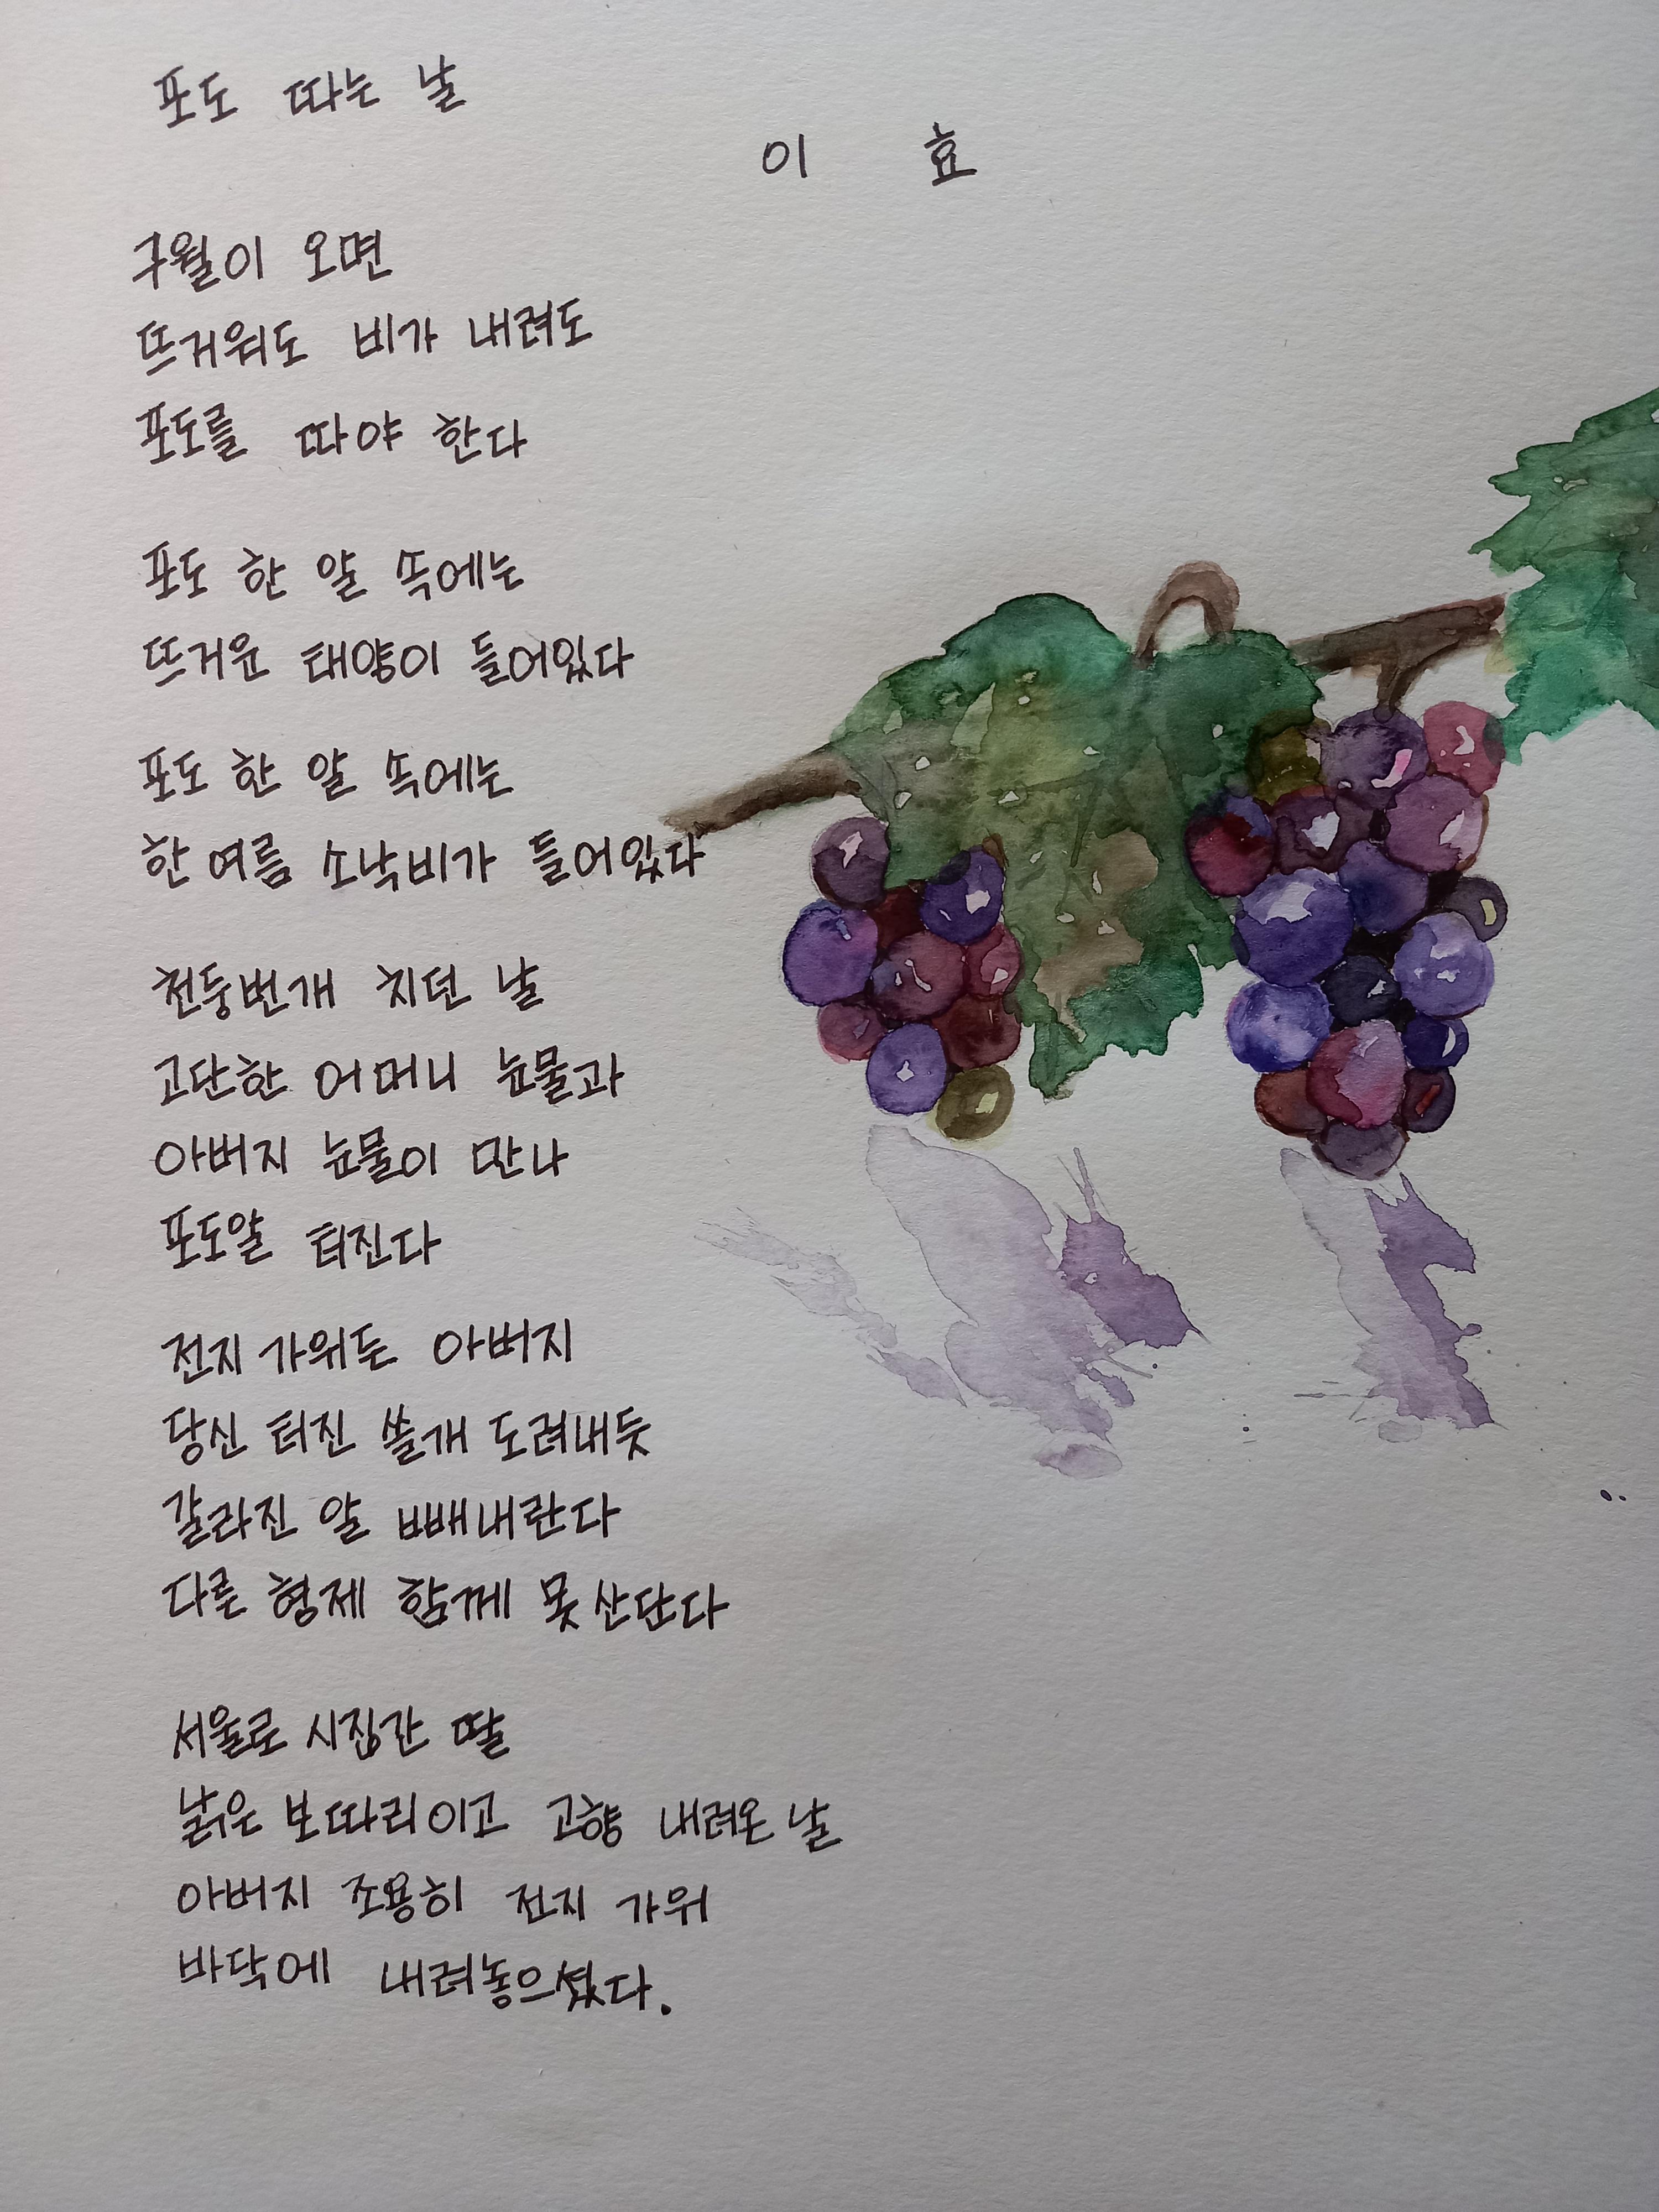 포도 따는 날
이 효
구월이 오면
뜨거워도 비가 내려도
포도를 따야 한다
포도 한 알 속에는
뜨거운 태양이 들어있다
포도 한 알 속에는
한 여름 소낙비가 들어있다
천둥번개 치던 날
고단한 어머니 눈물과
아버지 눈물이 만나
포도알 터진다
전지 가위든 아버지
당신 터진 쓸개 도려내듯
갈라진 알 빼내란다
다른 형제 함께 못 산단다
서울로 시집간 딸
낡은 보따리이고 고향 내려온 날
아버지 조용히 전지 가위
바닥에 내려놓으셨다.